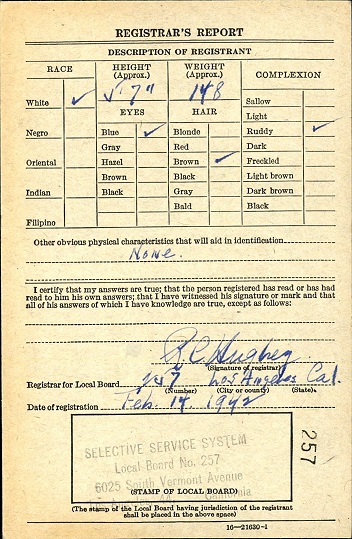 REGISTRAR'S REPORT
DESCRIPTION OF REGISTRANT
RACE
HEIGHT (Approx.)
WEIGHT (Approx.)
COMPLEXION
White ✓
5' 7"
148
Sallow
Light
EYES
HAIR
Negro
Blue ✓
Blonde
Ruddy ✓
Gray
Red
Dark
Oriental
Hazel
Brown ✓
Freckled
Brown
Black
Light brown
Indian
Black
Gray
Dark brown
Bald
Black
Filipino
Other obvious physical characteristics that will aid in identification
None.
I certify that my answers are true; that the person registered has read or has had
read to him his own answers; that I have witnessed his signature or mark and that
all of his answers of which I have knowledge are true, except as follows:
R C
(Signature of registrar)
Registrar for Local Board 247 Los Angeles Cal.
(Number) (City or county) (State)
Date of registration Feb. 14, 1942
SELECTIVE SERVICE SYSTEM
Local Board No. 257
6025 South Vermont Avenue
California
(STAMP OF LOCAL BOARD)
257
(The stamp of the Local Board having jurisdiction of the registrant
shall be placed in the above space)
16—21630-1